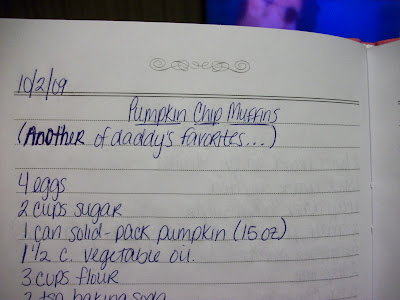 10/2/09
Pumpkin Chip Muffins
(Another of daddy's favorites...)
4 eggs
2 cups sugar
1 can solid-pack pumpkin (15 oz)
1 1/2 c. vegetable oil.
3 cups flour
2 tsp baking soda